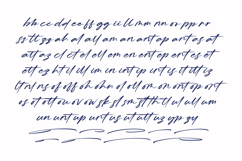 bb cc dd ee ff gg ii ll mm nn oo pp rr
ss tt zz ah al all am an ant ap art as at
att az ct el ell em en ent ep ert es et
ett ez ht il ill im in int ip irt is it itt iz
lt nt ns of off oh ohn ol oll om on ont op ort
os ot ott ou ov ow sk sl sm st tht ul ull um
un unt up urt us ut utt uz yp zy